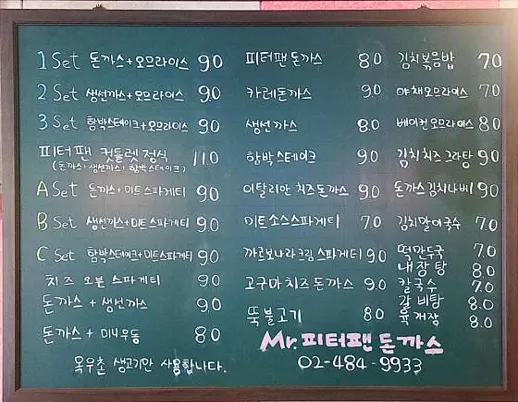 1 Set 돈까스+오므라이스 9.0
2 Set 생선까스+오므라이스 9.0
3 Set 함박스테이크+오므라이스 9.0
피터팬 컷틀렛정식 11.0
(돈까스+생선까스+함박스테이크)
A Set 돈까스+미트스파게티 9.0
B Set 생선까스+미트스파게티 9.0
C Set 함박스테이크+미트스파게티 9.0
치즈 오븐 스파게티 9.0
돈까스+생선까스 9.0
돈까스+미니우동 8.0
목우촌 생고기만 사용합니다.
피터팬 돈까스 8.0
카레돈까스 9.0
생선까스 8.0
함박스테이크 9.0
이탈리안 치즈돈까스 9.0
미트소스스파게티 7.0
까르보나라 크림 스파게티 9.0
고구마치즈돈까스 9.0
뚝불고기 8.0
김치볶음밥 7.0
야채오므라이스 7.0
베이컨오므라이스 8.0
김치치즈그라탕 9.0
돈까스김치나베 9.0
김치말이국수 7.0
떡만두국 7.0
내장탕 8.0
칼국수 7.0
갈비탕 8.0
육개장 8.0
Mr. 피터팬 돈까스
02-484-9933